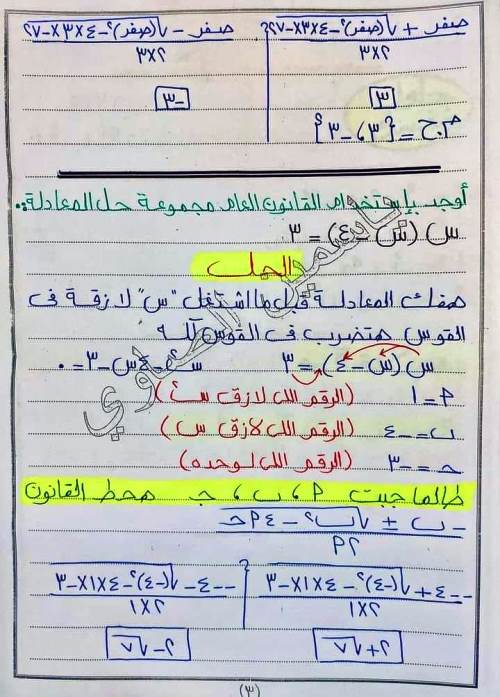 صفر + √(صفر)²-٤×٣×-٢٧ ، صفر - √(صفر)²-٤×٣×-٢٧
٢×٣ ٢×٣
٣ -٣
م.ح = {٣، -٣}
أوجد بإستخدام القانون العام مجموعة حل المعادلة..
س (س - ٤) = ٣
الحل
هفك المعادلة قبل ما اشتغل "س" لازقة فى
القوس هتضرب فى القوس كله
س (س - ٤) = ٣ س² - ٤س - ٣ = ٠
٩ = ١ (الرقم اللى لازق س²)
ب = -٤ (الرقم اللى لازق س)
حـ = -٣ (الرقم اللى لوحده)
طالما جبت ٩، ب، جـ هحط القانون
-ب ± √ب² - ٤٩حـ
٢٩
--٤ + √(-٤)²-٤×١×-٣ ، --٤ - √(-٤)²-٤×١×-٣
٢×١ ٢×١
٢+√٧ ٢-√٧
(٣)
ياسمين